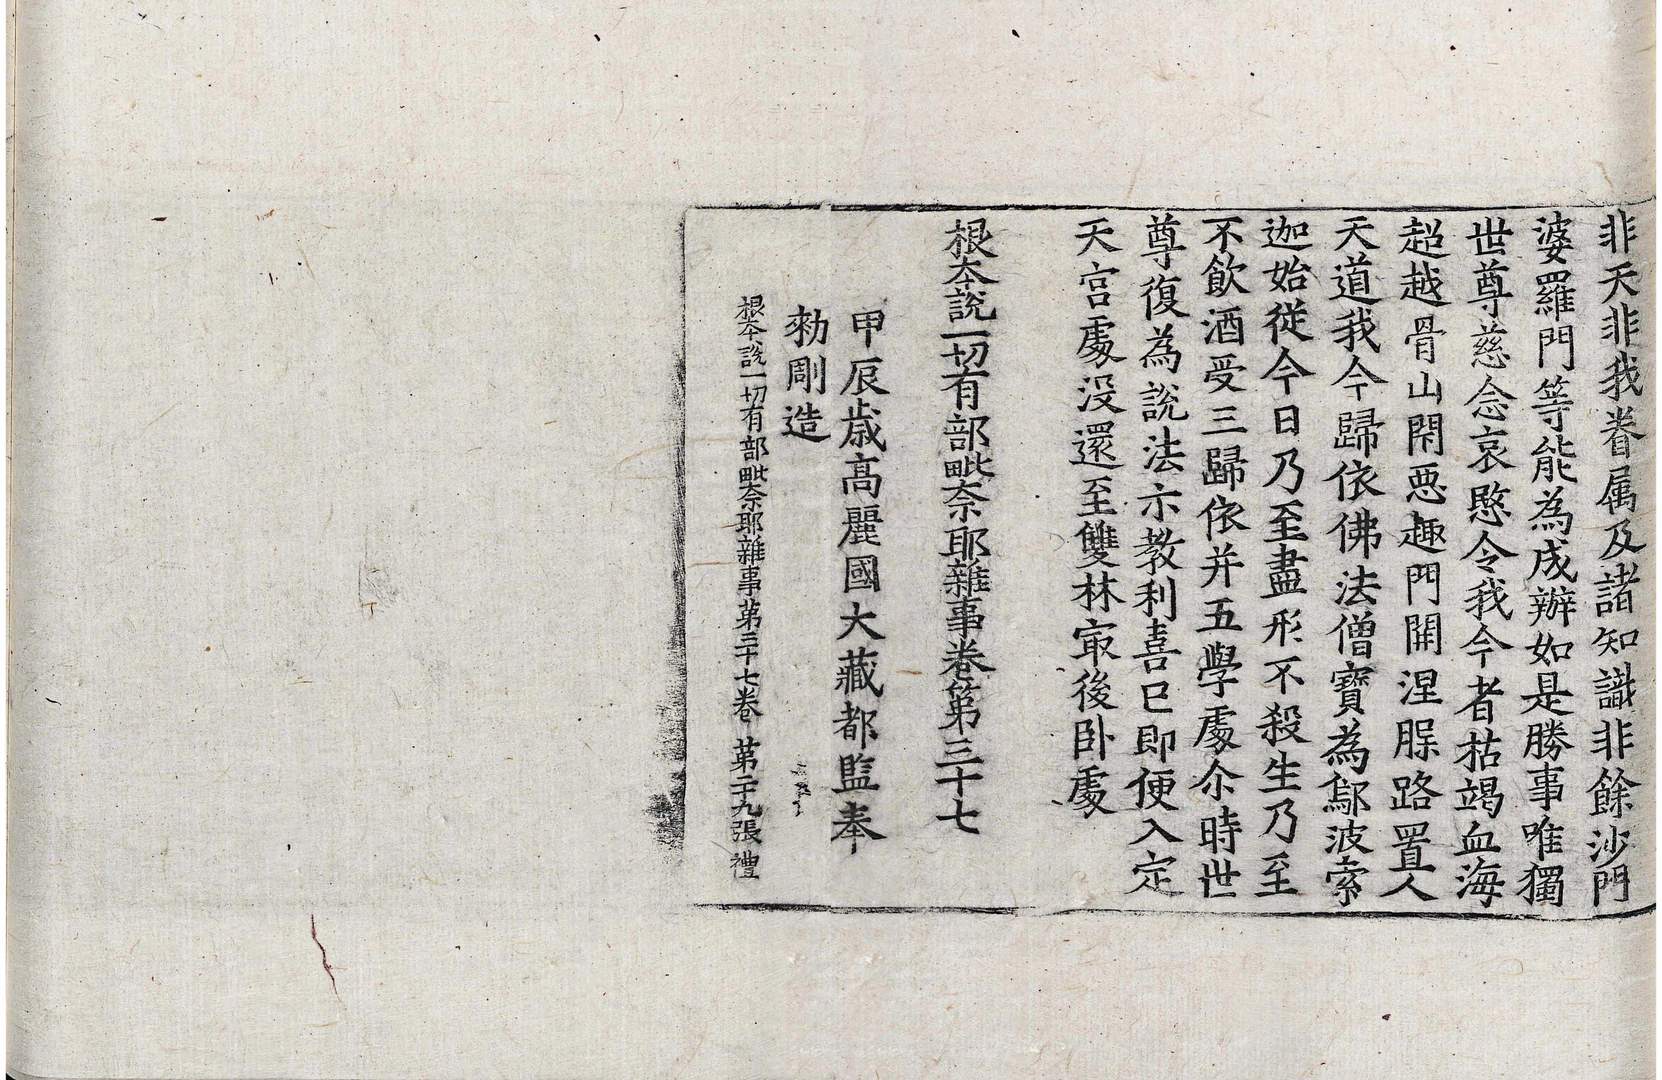 非天非我眷属及諸知識非餘沙門
婆羅門等能為成辦如是勝事唯獨
世尊慈念哀愍令我今者枯竭血海
超越骨山閇惡趣門開涅脲路置人
天道我今歸依佛法僧寶為鄔波索
迦始從今日乃至盡形不殺生乃至
不飲酒受三歸依并五學處尒時世
尊復為說法示教利喜已即便入定
天宮處没還至雙林㝡後卧處
根本說一切有部毗奈耶雜事卷第三十七
甲辰歲高麗國大藏都監奉
勑彫造
根本說一切有部毗奈耶雜事第三十七卷 第二十九張 禮